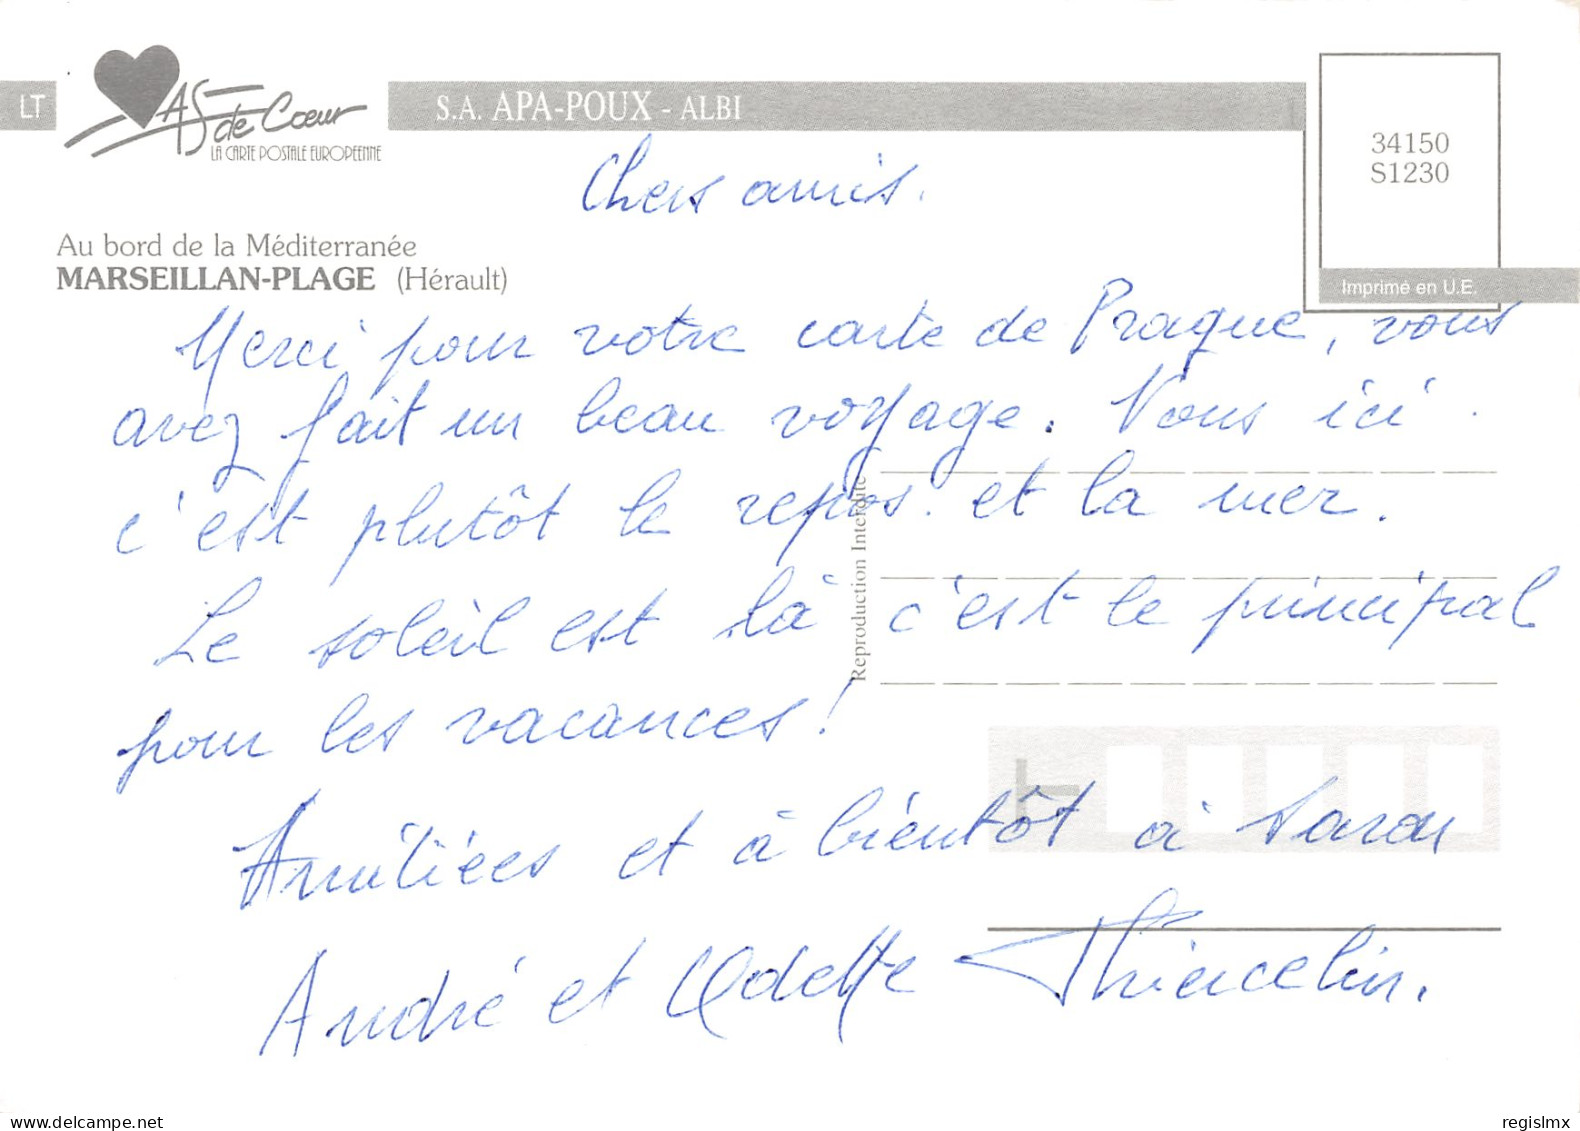 LT
AS de Cœur
LA CARTE POSTALE EUROPEENNE
S.A. APA-POUX - ALBI
34150
S1230
Imprimé en U.E.
Au bord de la Méditerranée
MARSEILLAN-PLAGE (Hérault)
Chers amis.
Merci pour votre carte de Prague, vous
avez fait un beau voyage. Nous ici
c'est plutôt le repos. et la mer.
Le soleil est là c'est le principal
pour les vacances !
Amitiées et à bientôt à Saran
André et Odette Thiercelin.
Reproduction Interdite
delcampe.net
regislmx